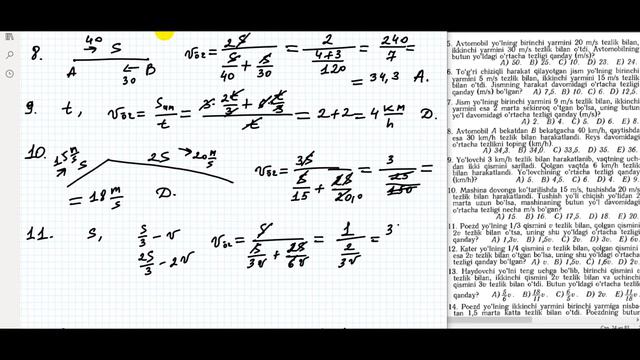 8. 40 S A B 30 v₀₂ = 2S / (S/40 + S/30) = 2 / ((4+3)/120) = 240/7 = 34,3 A.
9. t, v₀₂ = Sум/t = (3·2t/3 + 6·t/3)/t = 2+2 = 4 км/h D.
10. 15 m/s S 2S → 20 m/s v₀₂ = 3S / (S/15 + 2S/20,0) = 3 / (25/150) =
= 18 m/s D.
11. S, S/3 - v 2S/3 - 2v v₀₂ = S / (S/3v + 2S/6v) = 1 / (2/3v) = 3
5. Avtomobil yo'lning birinchi yarmini 20 m/s tezlik bilan,
ikkinchi yarmini 30 m/s tezlik bilan o'tdi. Avtomobilning
butun yo'ldagi o'rtacha tezligi qanday (m/s)?
A) 50. B) 25. C) 10. D) 23. E) 24.
6. To'g'ri chiziqli harakat qilayotgan jism yo'lning birinchi
yarmini 5 m/s tezlik bilan, ikkinchi yarmini 15 m/s tezlik
bilan o'tdi. Jismning harakat davomidagi o'rtacha tezligi
qanday (m/s) bo'lgan? A) 7,5. B) 10. C) 6. D) 12,5.
7. Jism yo'lning birinchi yarmini 9 m/s tezlik bilan, ikkinchi
yarmini esa 2 marta sekinroq o'tgan bo'lsa, uning butun
yo'l davomidagi o'rtacha tezligi qanday (m/s)?
A) 2. B) 4. C) 5. D) 6. E) 8.
8. Avtomobil A bekatdan B bekatgacha 40 km/h, qaytishda
esa 30 km/h tezlik bilan harakatlandi. Reys davomidagi
o'rtacha tezlikni toping (km/h).
A) 34,3. B) 34,0. C) 33,5. D) 35. E) 36.
9. Yo'lovchi 3 km/h tezlik bilan harakatlanib, vaqtning uch-
dan ikki qismini sarfladi. Qolgan vaqtda 6 km/h tezlik
bilan harakatlandi. Yo'lovchining o'rtacha tezligi qanday
(km/h)? A) 5. B) 4,5. C) 6. D) 4. E) 9.
10. Mashina dovonga ko'tarilishda 15 m/s, tushishda 20 m/s
tezlik bilan harakatlandi. Tushish yo'li chiqish yo'lidan 2
marta uzun bo'lsa, mashinaning butun yo'l davomidagi
o'rtacha tezligi necha m/s bo'lgan?
A) 15. B) 16. C) 17,5. D) 18. E) 20.
11. Poezd yo'lning 1/3 qismini v tezlik bilan, qolgan qismini
2v tezlik bilan o'tsa, uning shu yo'ldagi o'rtacha tezligi
qanday? A) 1,3v. B) 1,5v. C) v. D) 2v. E) 3v.
12. Kater yo'lning 1/4 qismini v tezlik bilan, qolgan qismini
esa 2v tezlik bilan o'tgan bo'lsa, uning shu yo'ldagi o'rtacha
tezligi qanday bo'lgan? A) v. B) 1,5v. C) 1,6v. D) 2v.
13. Haydovchi yo'lni teng uchga bo'lib, birinchi qismini v
tezlik bilan, ikkinchi qismini 2v tezlik bilan va uchinchi
qismini 3v tezlik bilan o'tdi. Butun yo'ldagi o'rtacha tezlik
qanday? A) 5/6 v. B) 18/11 v. C) 6/5 v. D) 2v. E) 11/18 v.
14. Poezd yo'lning ikkinchi yarmini birinchi yarmiga nisba-
tan 1,5 marta katta tezlik bilan o'tdi. Poezdning butun